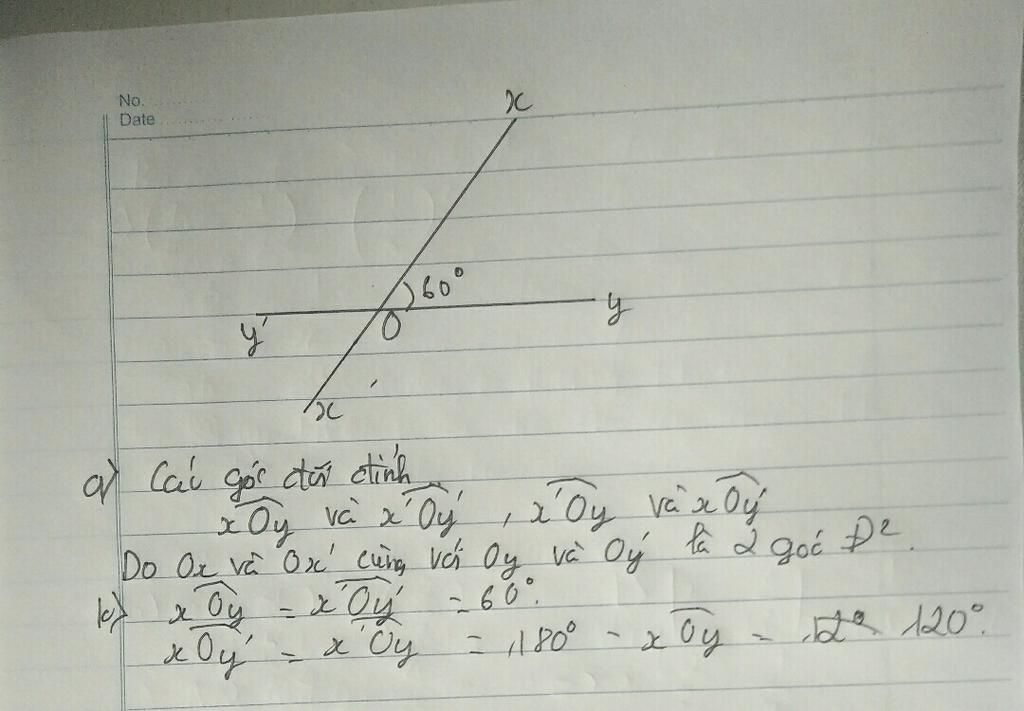 No.
Date
x
60°
y'
O
y
x'
a) Các góc đối đỉnh
xOy và x'Oy', x'Oy và xOy'
Do Ox và Ox' cùng với Oy và Oy' là 2 góc Đ².
b) xOy = x'Oy' = 60°.
xOy' = x'Oy = 180° - xOy = 120°.